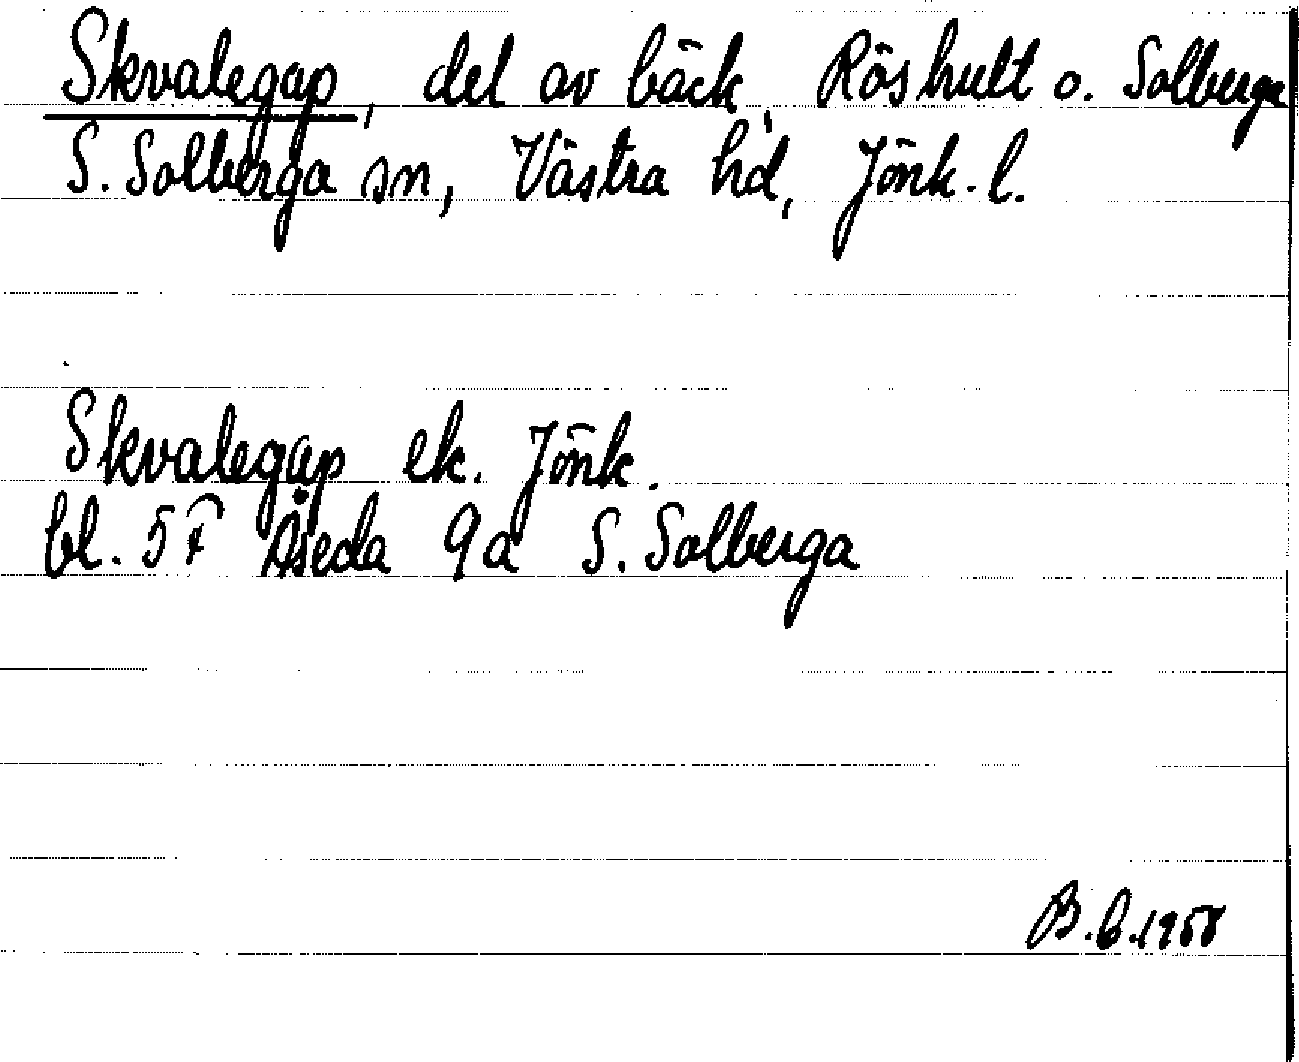 Skvalegap, del av bäck, Röshult o. Solberga
S. Solberga sn, Västra hd, Jönk. l.
Skvalegap ek. Jönk.
bl. 5F Åseda 9a S. Solberga
B.b.1958